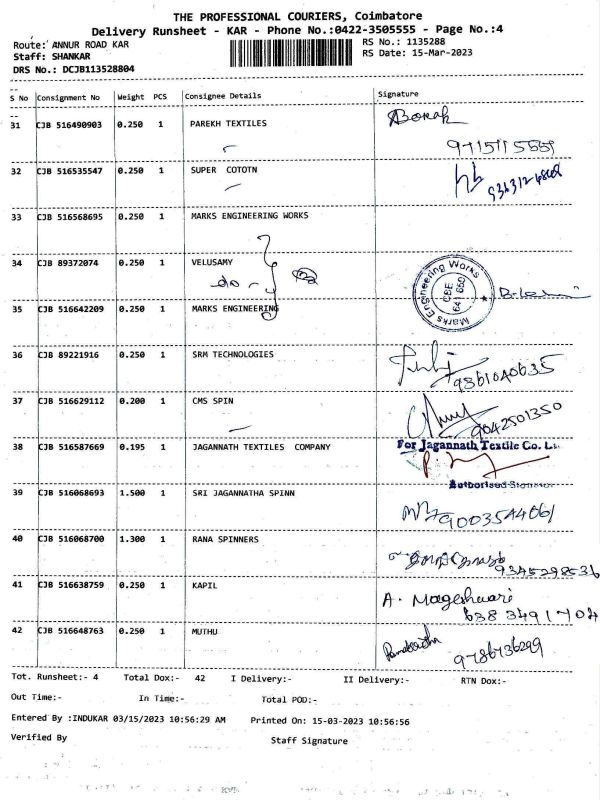 THE PROFESSIONAL COURIERS, Coimbatore
Delivery Runsheet - KAR - Phone No.:0422-3505555 - Page No.:4
Route: ANNUR ROAD KAR
RS No.: 1135288
Staff: SHANKAR
RS Date: 15-Mar-2023
DRS No.: DCJB113528804
S No Consignment No Weight PCS Consignee Details Signature
31 CJB 516490903 0.250 1 PAREKH TEXTILES
9715115559
32 CJB 516535547 0.250 1 SUPER COTOTN
33 CJB 516568695 0.250 1 MARKS ENGINEERING WORKS
34 CJB 89372074 0.250 1 VELUSAMY
do
Marks Engineering Works CBE 641 650
35 CJB 516642209 0.250 1 MARKS ENGINEERING
36 CJB 89221916 0.250 1 SRM TECHNOLOGIES
9361040635
37 CJB 516629112 0.200 1 CMS SPIN
9042501350
38 CJB 516587669 0.195 1 JAGANNATH TEXTILES COMPANY
For Jagannath Textile Co. L
Authorised Signator
39 CJB 516068693 1.500 1 SRI JAGANNATHA SPINN
9003544061
40 CJB 516068700 1.300 1 RANA SPINNERS
9345298536
41 CJB 516638759 0.250 1 KAPIL
A. Mageshwari
638 3491704
42 CJB 516648763 0.250 1 MUTHU
9786736299
Tot. Runsheet:- 4 Total Dox:- 42 I Delivery:- II Delivery:- RTN Dox:-
Out Time:- In Time:- Total POD:-
Entered By :INDUKAR 03/15/2023 10:56:29 AM Printed On: 15-03-2023 10:56:56
Verified By Staff Signature